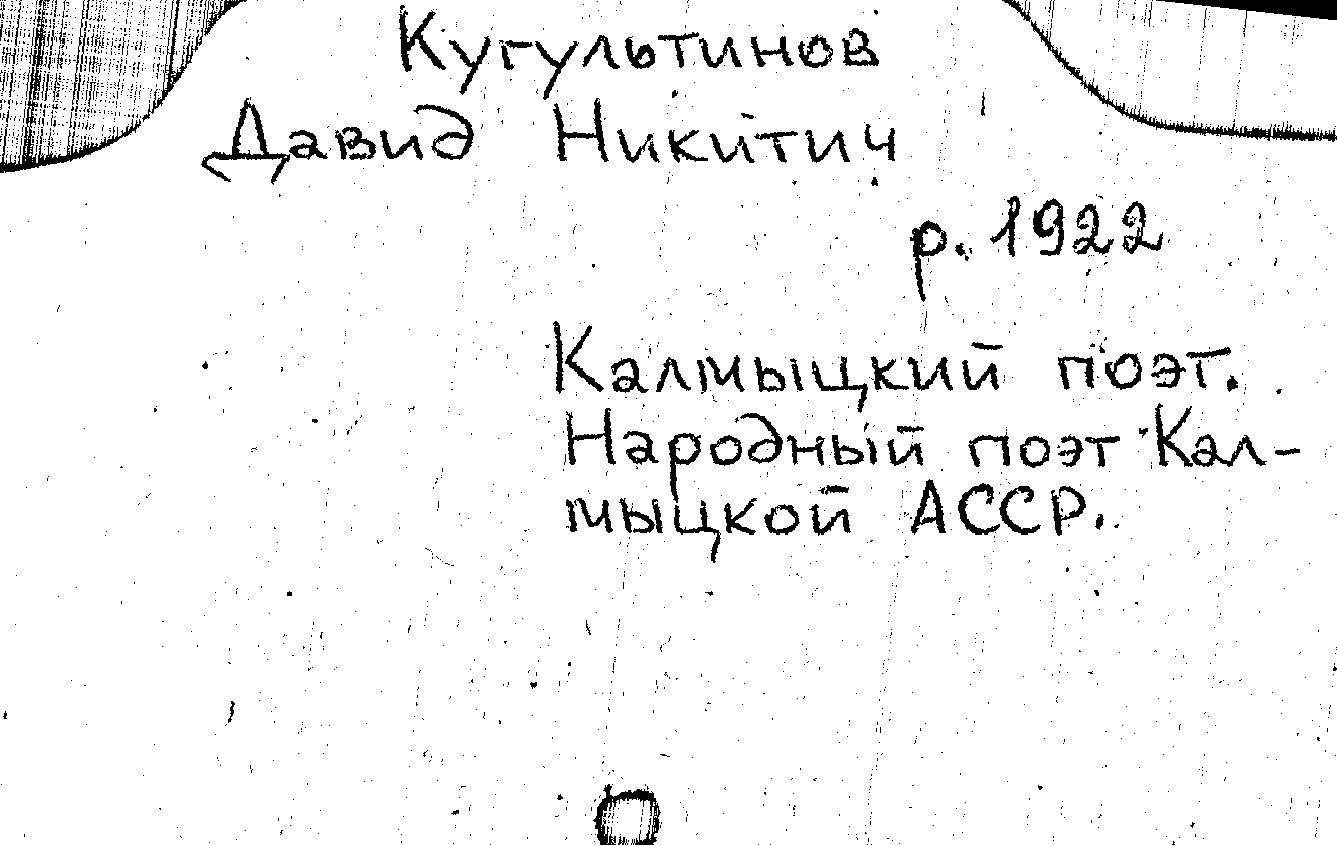 Кугультинов
Давид Никитич
р. 1922
Калмыцкий поэт.
Народный поэт Кал-
мыцкой АССР.